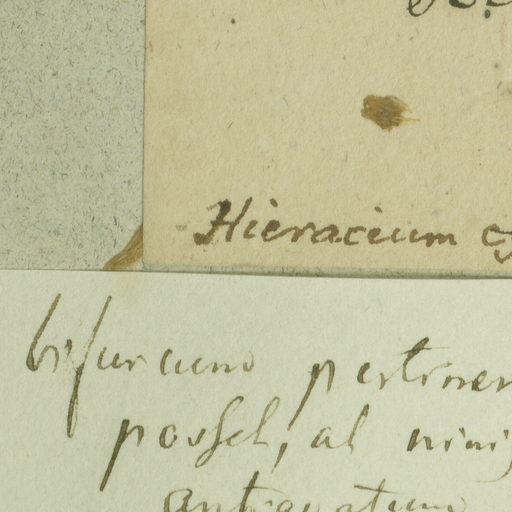 Hieracium
bifurcum pertiner
posset, at nimi
antiquatum